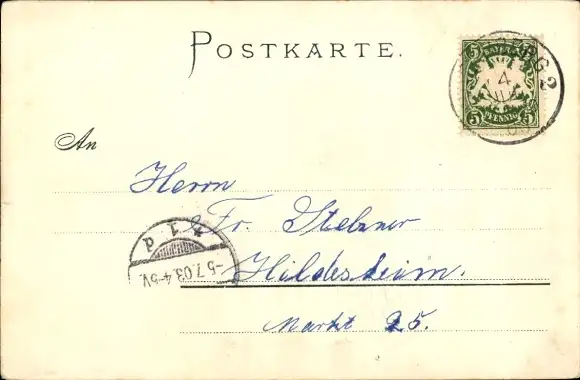 POSTKARTE.
5 BAYERN 5
5 PFENNIG 5
4
2
An
Herrn
Fr. Stelzner
* 1 d
-5.7.03.4-5V.
Hildesheim.
Markt 25.